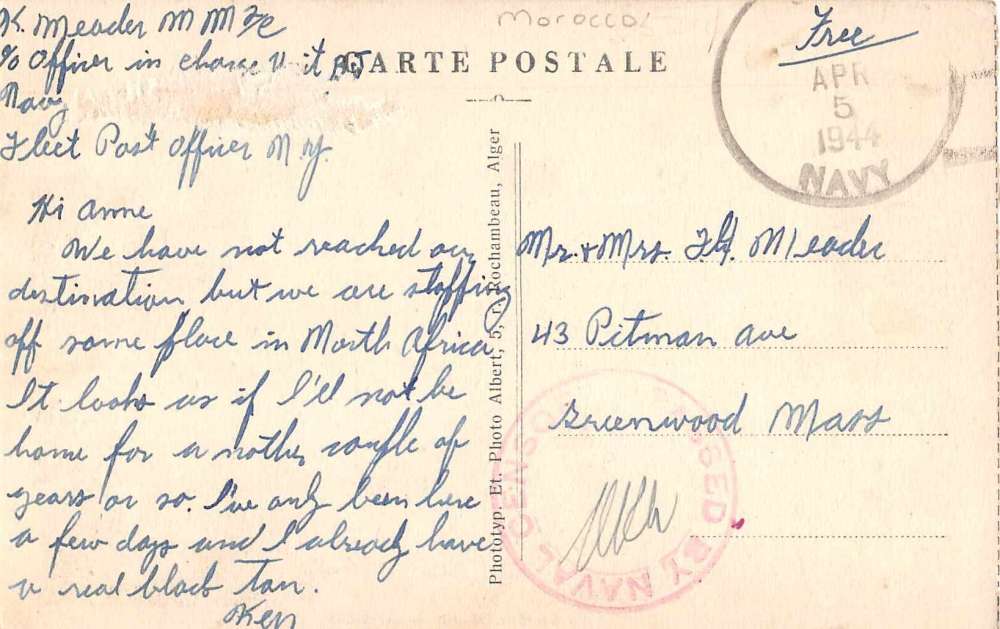 K. Meader M M 2/c
Morocco
Free
c/o Officer in charge Unit
CARTE POSTALE
Navy
Fleet Post Officer N.Y.
APR
5
1944
NAVY
Hi Anne
We have not reached our
destination but we are stopping
off some place in North Africa
It looks as if I'll not be
home for a nother couple of
years or so. I've only been here
a few days and I already have
a real black tan.
Ken
Phototyp. Et. Photo Albert, 5, r. Rochambeau, Alger
Mr. & Mrs. Meader
43 Pitman Ave
Greenwood Mass
PASSED BY NAVAL CENSOR